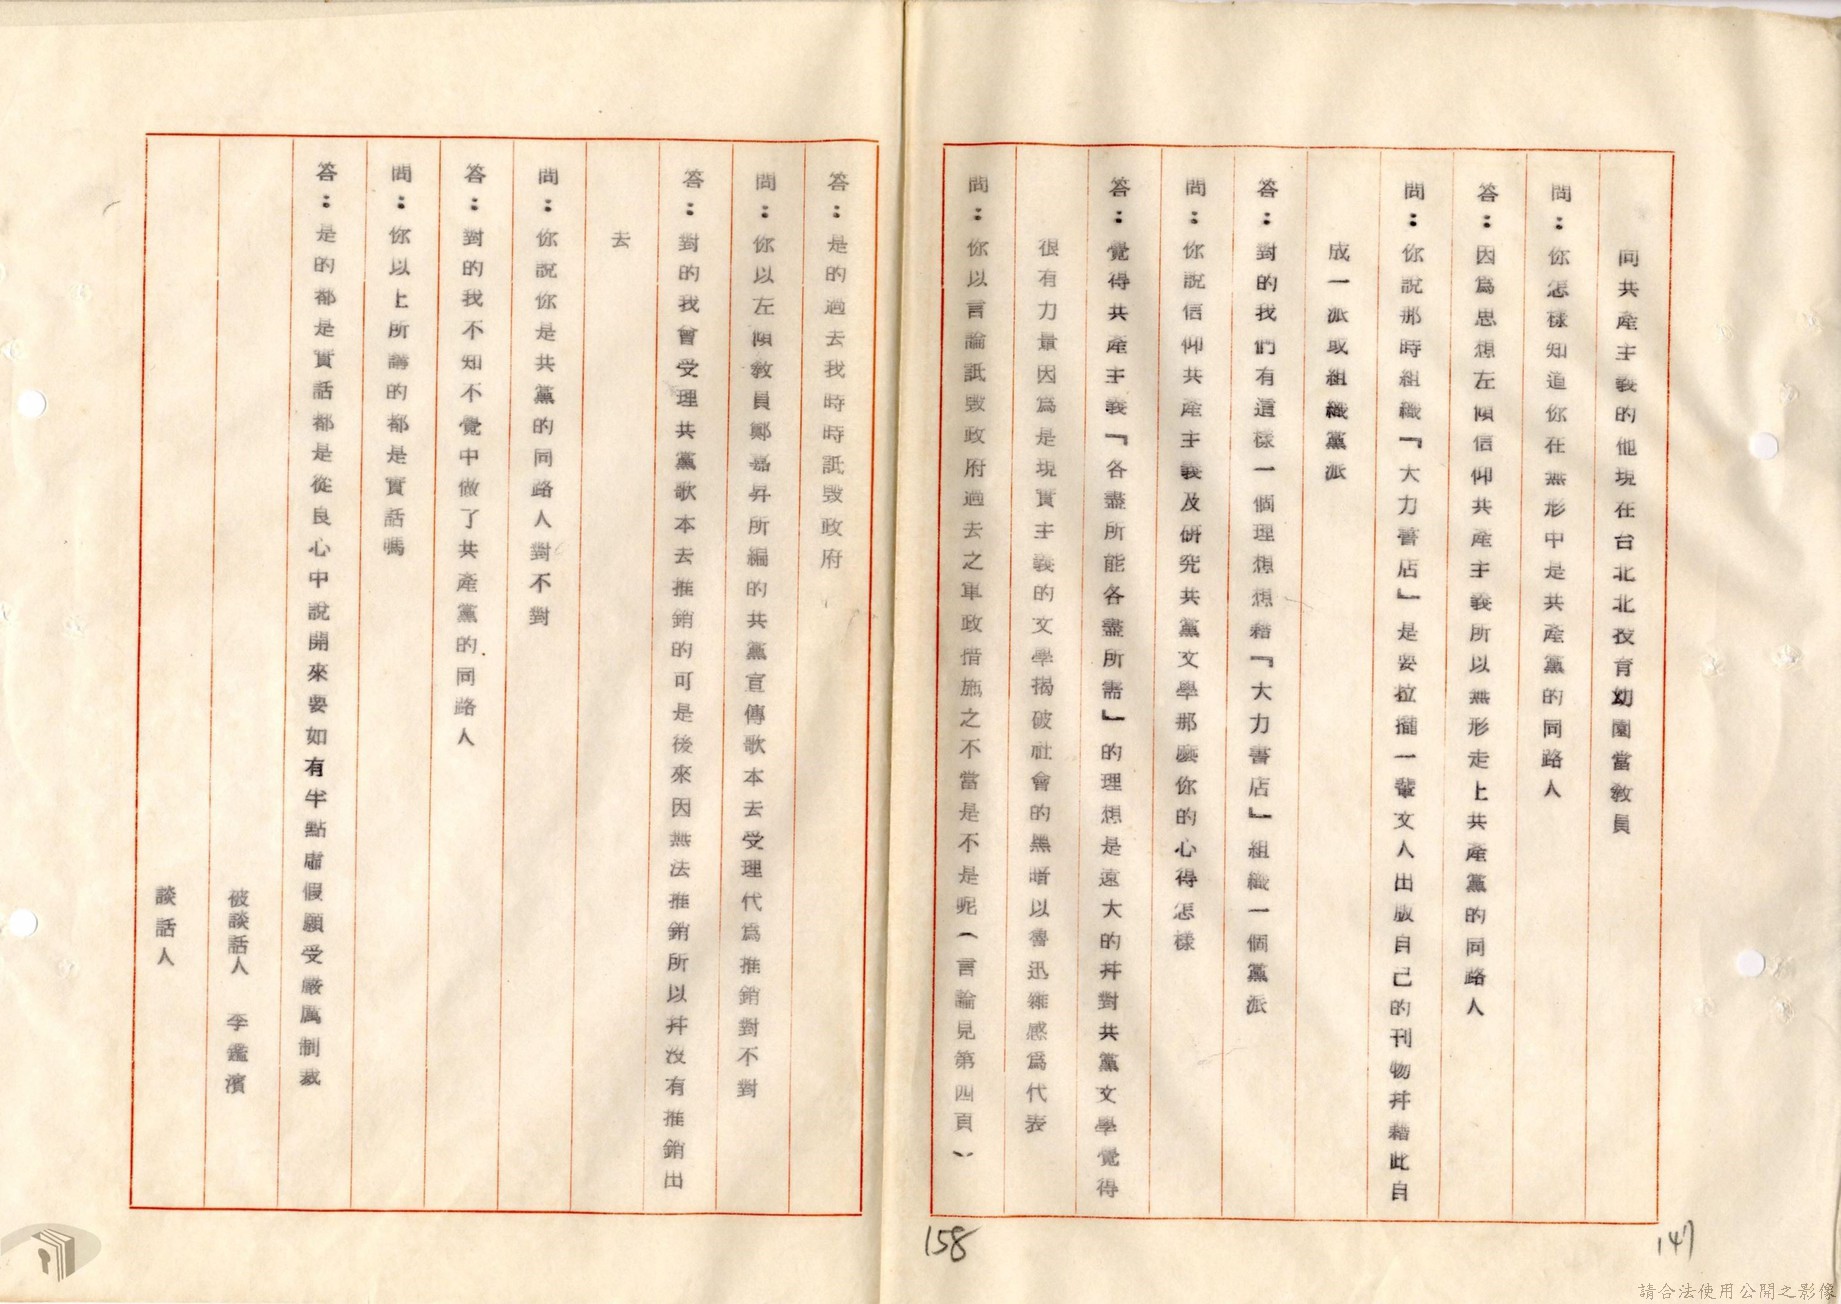 同共產主義的他現在台北北投育幼園當教員
問：你怎樣知道你在無形中是共產黨的同路人
答：因爲思想左傾信仰共產主義所以無形走上共產黨的同路人
問：你說那時組織『大力書店』是要拉攏一輩文人出版自己的刊物幷藉此自
成一派或組織黨派
答：對的我們有這樣一個理想想藉『大力書店』組織一個黨派
問：你說信仰共產主義及研究共黨文學那麽你的心得怎樣
答：覺得共產主義『各盡所能各盡所需』的理想是遠大的幷對共黨文學覺得
很有力量因爲是現實主義的文學揭破社會的黑暗以魯迅雜感爲代表
問：你以言論詆毀政府過去之軍政措施之不當是不是呢（言論見第四頁）
答：是的過去我時時詆毀政府
問：你以左傾教員鄭嘉昇所編的共黨宣傳歌本去受理代爲推銷對不對
答：對的我會受理共黨歌本去推銷的可是後來因無法推銷所以幷沒有推銷出
去
問：你說你是共黨的同路人對不對
答：對的我不知不覺中做了共產黨的同路人
問：你以上所講的都是實話嗎
答：是的都是實話都是從良心中說開來要如有半點虛假願受嚴厲制裁
被談話人 李鑑濱
談話人
158
147
請合法使用公開之影像